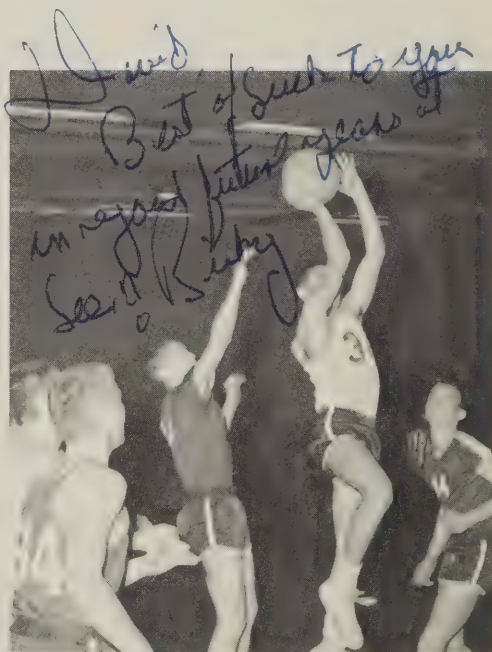 David,
Best of luck to you
in regard future years at
See.
3